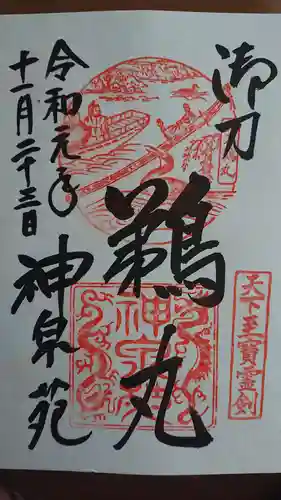 御刀
鵜丸
天下至寶靈劍
令和元年
十一月二十三日
神泉苑
神泉苑